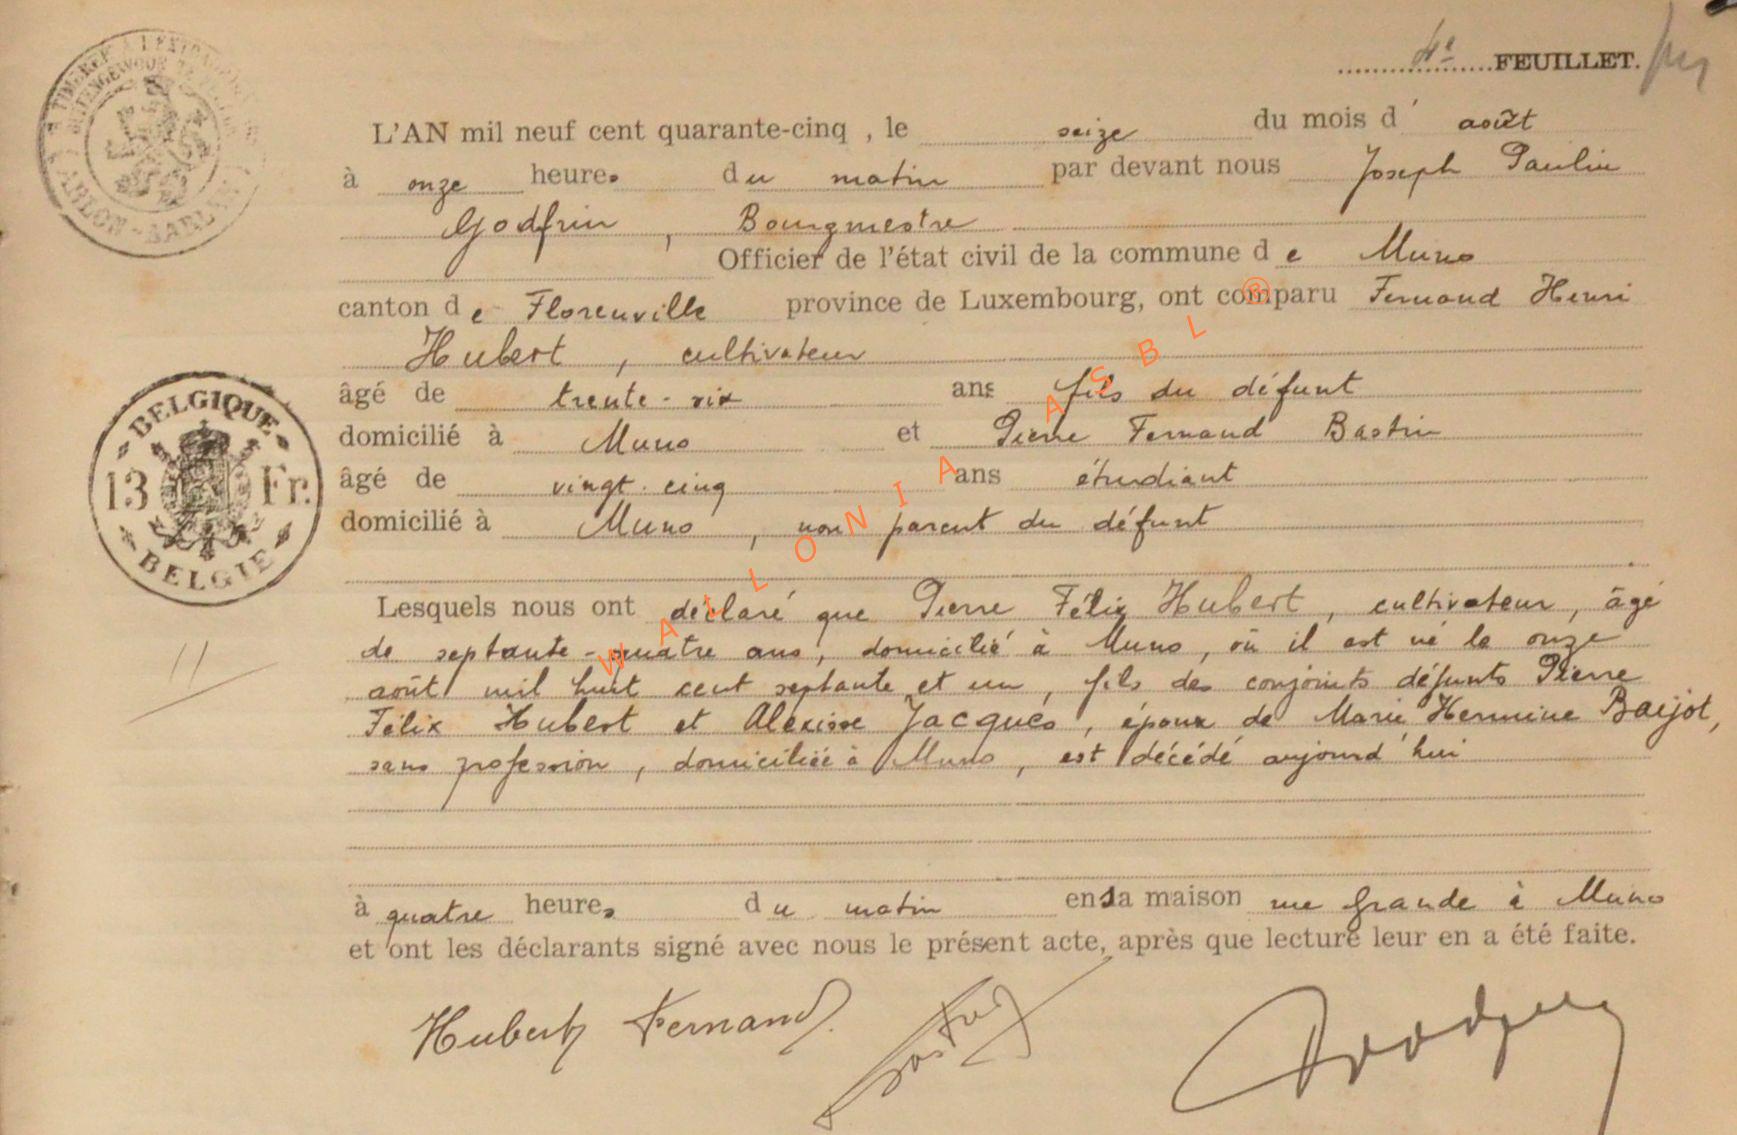 4e FEUILLET.
TIMBRÉ A L'EXTRAORDINAIRE
ARLON - AARLEN
L'AN mil neuf cent quarante-cinq , le seize du mois d' août
à onze heures du matin par devant nous Joseph Paulin
Godfrin , Bourgmestre
Officier de l'état civil de la commune de Muno
canton de Florenville province de Luxembourg, ont comparu Fernand Henri
Hubert , cultivateur
âgé de trente-six ans fils du défunt
domicilié à Muno et Pierre Fernand Bastin
âgé de vingt-cinq ans étudiant
domicilié à Muno , non parent du défunt
BELGIQUE
13 Fr.
BELGIE
Lesquels nous ont déclaré que Pierre Félix Hubert, cultivateur, âgé
de septante-quatre ans, domicilié à Muno, où il est né le onze
août mil huit cent septante et un, fils des conjoints défunts Pierre
Félix Hubert et Alexisse Jacques, époux de Marie Hermine Baijot,
sans profession, domiciliée à Muno, est décédé aujourd'hui
11
à quatre heures du matin en sa maison rue Grande à Muno
et ont les déclarants signé avec nous le présent acte, après que lecture leur en a été faite.
Hubert Fernand.
WALLONIA ASBL ®